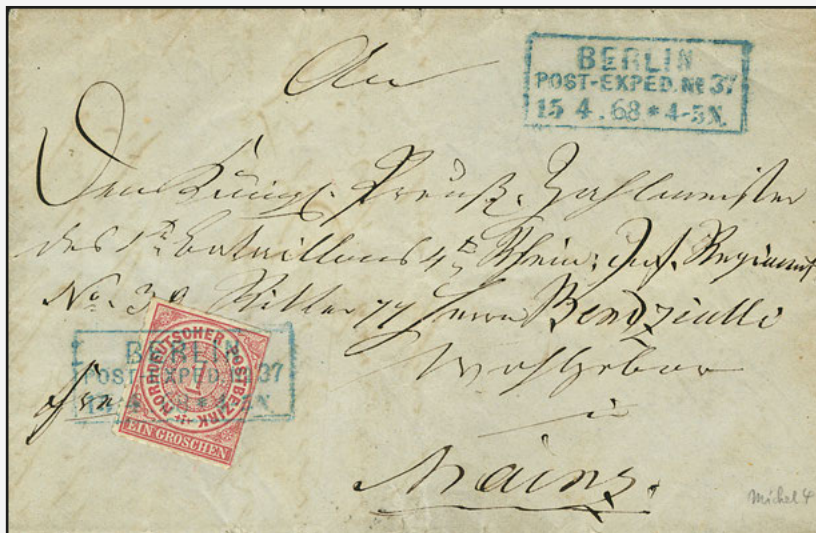 An
BERLIN
POST-EXPED. No 37
15 4. 68 * 4-5N.
Den Königl. Preuß. Zahlmeister
des 1ten Bataillons 4ten Rhein: Inf. Regiment
No. 30 Ritter pp Herrn Bendziulli
BERLIN
POST-EXPED. No 37
NORDDEUTSCHER POSTBEZIRK
1
EIN GROSCHEN
Wohlgebor
in
Mainz.
Michel 4